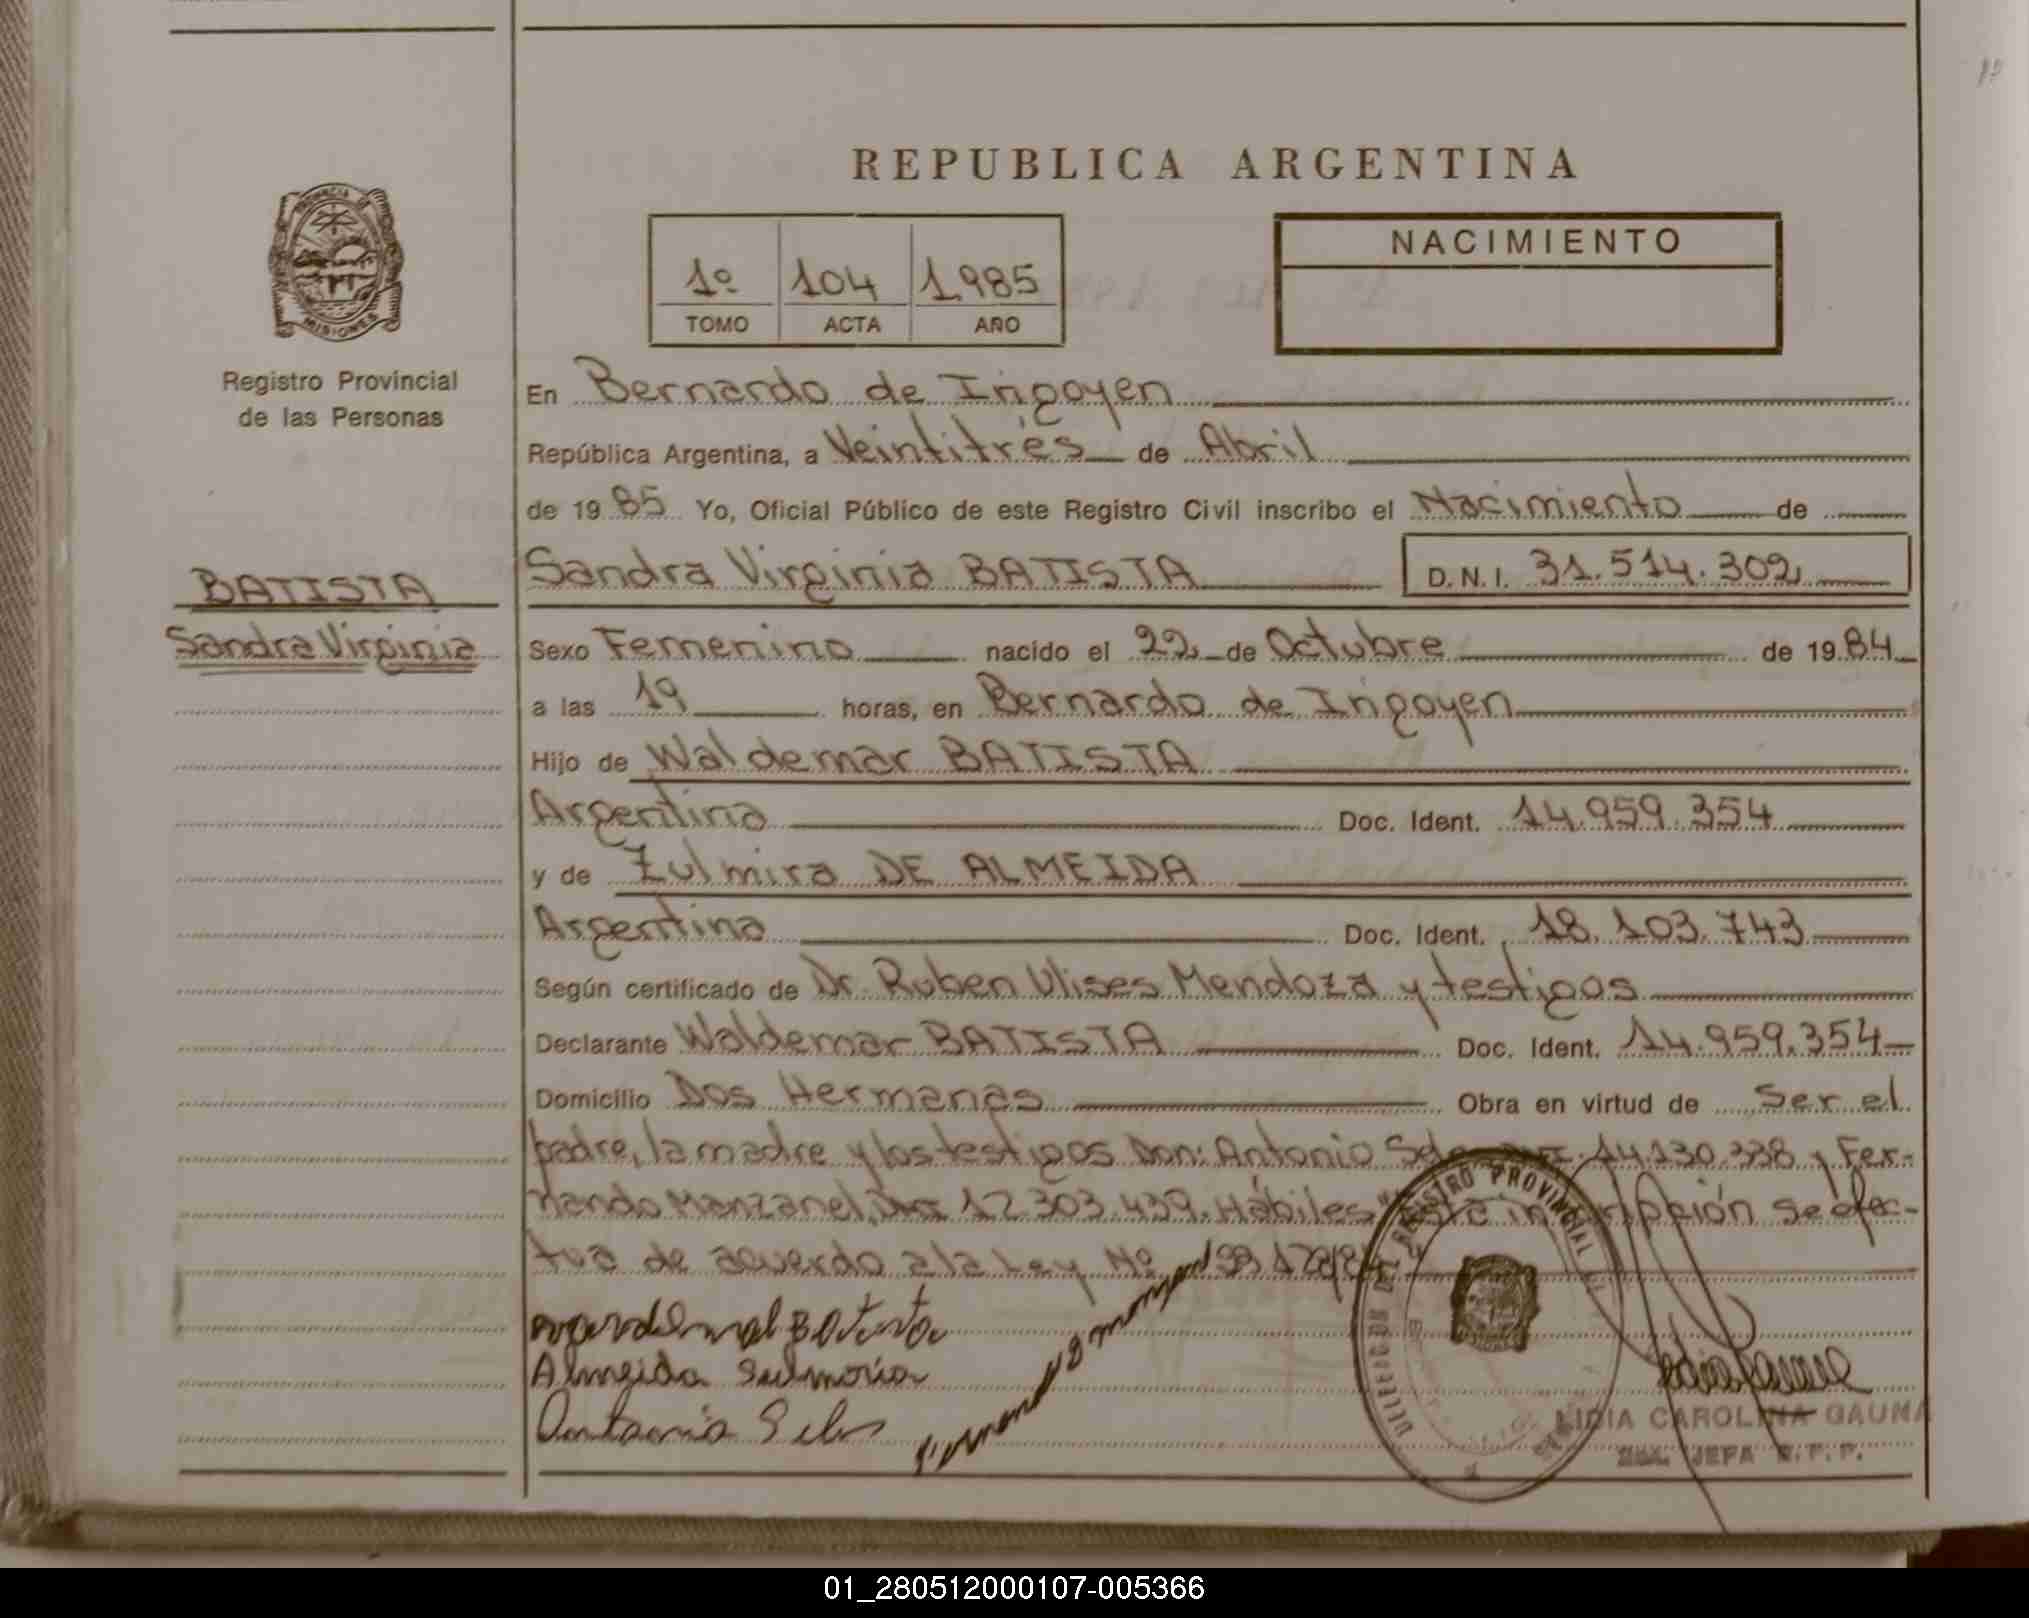 REPUBLICA ARGENTINA
PROVINCIA DE
MISIONES
Registro Provincial
de las Personas
1º 104 1985
TOMO ACTA AÑO
NACIMIENTO
En Bernardo de Irigoyen
República Argentina, a Veintitrés de Abril
de 19 85 Yo, Oficial Público de este Registro Civil inscribo el Nacimiento de
Sandra Virginia BATISTA D.N.I. 31.514.302
BATISTA
Sandra Virginia
Sexo Femenino nacido el 22 de Octubre de 19 84
a las 19 horas, en Bernardo de Irigoyen
Hijo de Waldemar BATISTA
Argentino Doc. Ident. 14.959.354
y de Zulmira DE ALMEIDA
Argentina Doc. Ident. 18.103.743
Según certificado de Dr. Ruben Ulises Mendoza y testigos
Declarante Waldemar BATISTA Doc. Ident. 14.959.354
Domicilio Dos Hermanas Obra en virtud de Ser el
padre, la madre y los testigos Don: Antonio 14.130.338 y Fer-
nando Manzanel, 12.303.439. Hábiles "Esta inscripción se efec-
tua de acuerdo a la Ley Nº
Batista
Almeida
Antonio
REGISTRO PROVINCIAL
LIDIA CAROLINA GAUNA
JEFA R.P.P.
01_280512000107-005366